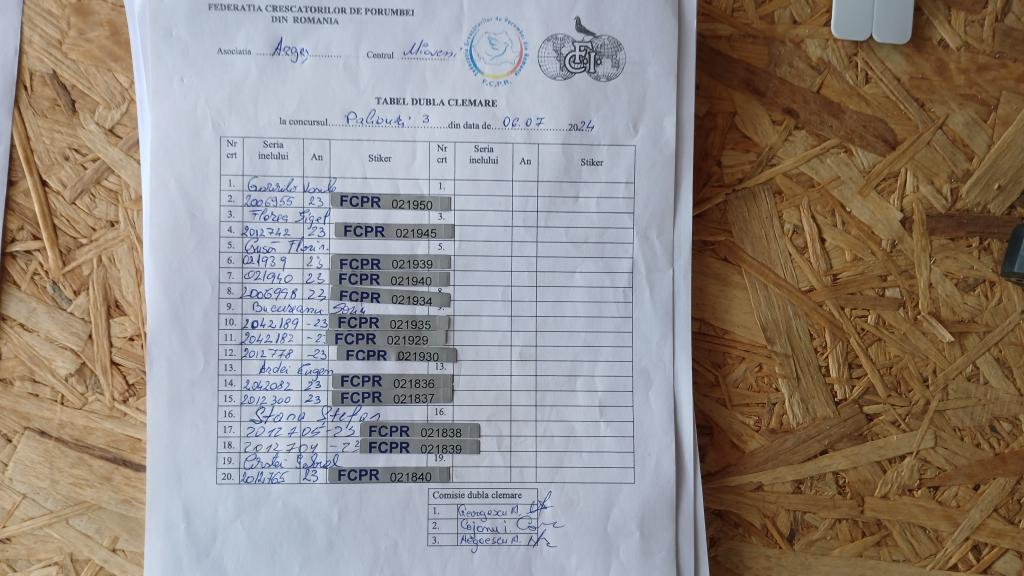 FEDERATIA CRESCATORILOR DE PORUMBEI
DIN ROMANIA
Asociatia ..... Argeș ..... Centrul ... Mioveni
F.C.P.R.
FCI
TABEL DUBLA CLEMARE
la concursul..... 3 .....din data de...06.07.......2024
Nr crt Seria inelului An Stiker Nr crt Seria inelului An Stiker
1. 1.
2. 2006955 23 FCPR 021950
3. Florea 3.
4. 2012742 23 FCPR 021945
5. Florin 5.
6. 021939 23 FCPR 021939
7. 021940 23 FCPR 021940
8. 2006998 23 FCPR 021934 8
9. Bucureanu 9.
10. 2042189 -23 FCPR 021935
11. 2042182 -23 FCPR 021929
12. 2012778 -23 FCPR 021930
13. Ardei Eugen 13.
14. 2042082 23 FCPR 021836
15. 2012300 23 FCPR 021837
16. Stana Ștefan 16.
17. 2012705-23 FCPR 021838
18. 2012704 -23 FCPR 021839
19. 19.
20. 2012765 23 FCPR 021840
Comisie dubla clemare
1. Georgescu M.
2. Cojanu i.
3. Negoescu A.